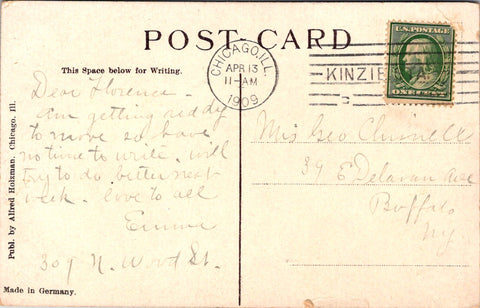 POST CARD
This Space below for Writing.
CHICAGO, ILL.
APR 13
11-AM
1909
KINZIE
U.S. POSTAGE
ONE CENT
Dear Florence -
Am getting reddy
to move so have
no time to write. will
try to do better next
week. love to all
Emma
309 N. Wood St.
Geo
39 E Delavan Ave
Buffalo
NY.
Publ. by Alfred Holzman, Chicago, Ill.
Made in Germany.